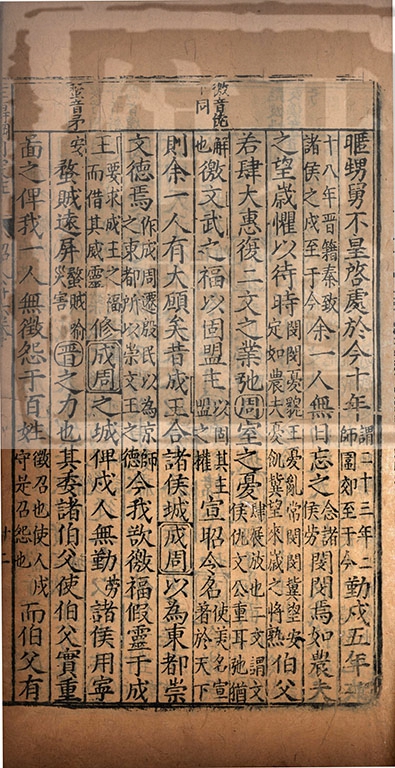 暱甥舅不皇啓處於今十年謂二十三年二師圍郊至于今勤戍五年
十八年晉籍秦致諸侯之戍至于今余一人無日忘之念諸侯勞閔閔焉如農夫
之望歲懼以待時閔閔憂貌王憂亂常閔閔冀望安定如農夫憂飢冀望來歲之將熟伯父
若肆大惠復二文之業弛周室之憂肆展放也二文謂文侯仇文公重耳弛猶
徼音
同
解也徼文武之福以固盟主以固其主盟之權宣昭令名使美名宣著於天下
則余一人有大願矣昔成王合諸侯城成周以為東都崇
文德焉作成周遷殷民以為京師之東都所以崇文王之德今我欲徼福假靈于成
王要求成王之福而借其威靈修成周之城俾戍人無勤勞諸侯用寧
蝥音矛
安蝥賊遠屏蝥賊喻災害晉之力也其委諸伯父使伯父實重
圖之俾我一人無徵怨于百姓徵召也使人戍守是召怨也而伯父有
廿二